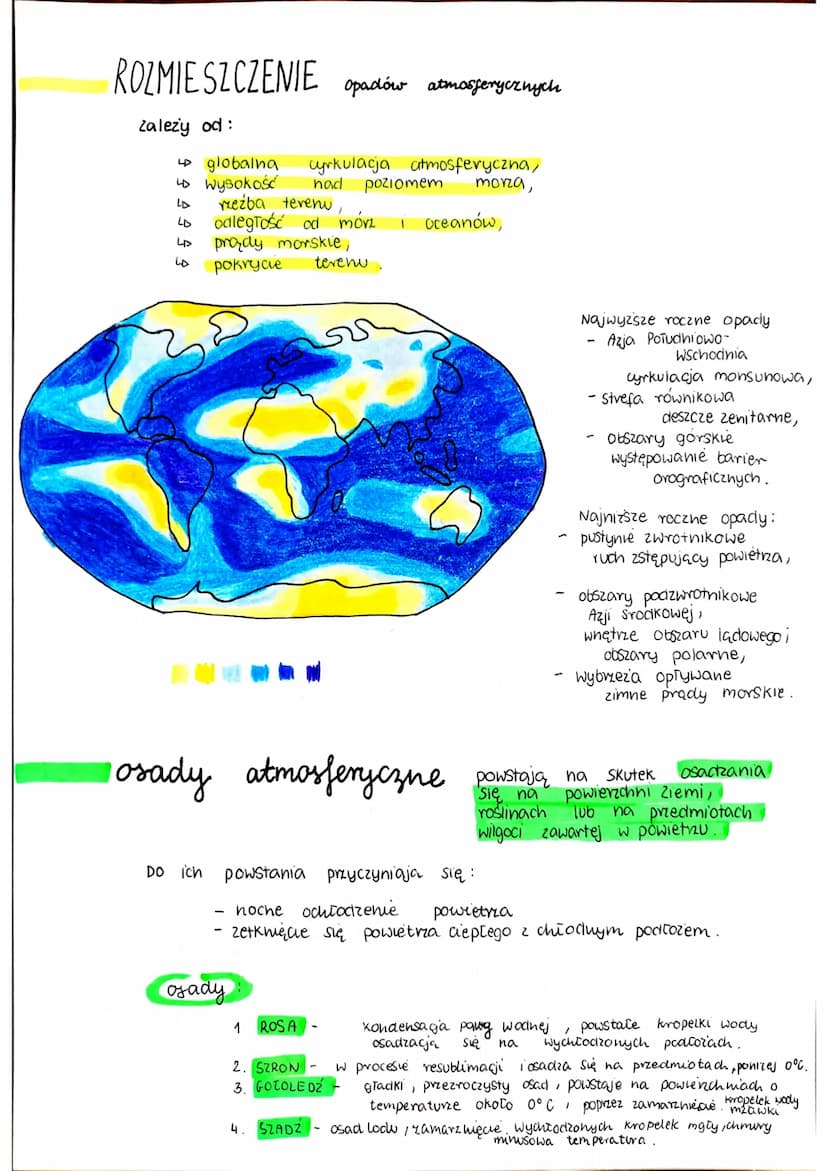 ROZMIESZCZENIE opadów atmosferycznych
zależy od:
↳ globalna cyrkulacja atmosferyczna,
↳ wysokość nad poziomem morza,
↳ rzeźba terenu,
↳ odległość od mórz i oceanów,
↳ prądy morskie,
↳ pokrycie terenu.
Najwyższe roczne opady
- Azja Południowo-
Wschodnia
cyrkulacja monsunowa,
- strefa równikowa
deszcze zenitarne,
- obszary górskie
występowanie barier
orograficznych.
Najniższe roczne opady:
- pustynie zwrotnikowe
ruch zstępujący powietrza,
- obszary podzwrotnikowe
Azji środkowej,
wnętrze obszaru lądowego i
obszary polarne,
- wybrzeża opływane
zimne prądy morskie.
osady atmosferyczne
powstają na skutek osadzania
się na powierzchni Ziemi,
roślinach lub na przedmiotach
wilgoci zawartej w powietrzu.
DO ich powstania przyczyniają się:
- nocne ochłodzenie powietrza
- zetknięcie się powietrza ciepłego z chłodnym podłożem.
osady:
1 ROSA - kondensacja pary wodnej, powstałe kropelki wody
osadzają się na wychłodzonych podłożach.
2. SZRON - w procesie resublimacji i osadza się na przedmiotach, poniżej 0°C.
3. GOŁOLEDŹ - gładki, przezroczysty osad, powstaje na powierzchniach o
temperaturze około 0°C, poprzez zamarznięcie kropelek wody
mżawki
4. SZADŹ - osad lodu, zamarznięcie wychłodzonych kropelek mgły, chmury
minusowa temperatura.